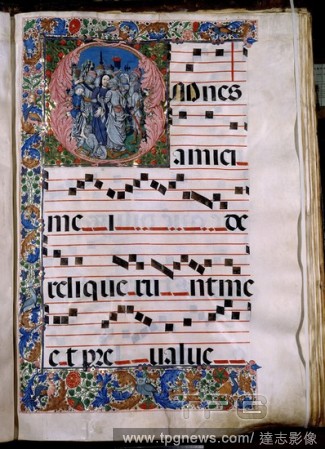 Omnes
amici
me i de
relique ru nt me
et pre value
www.tpgnews.com/ 達志影像